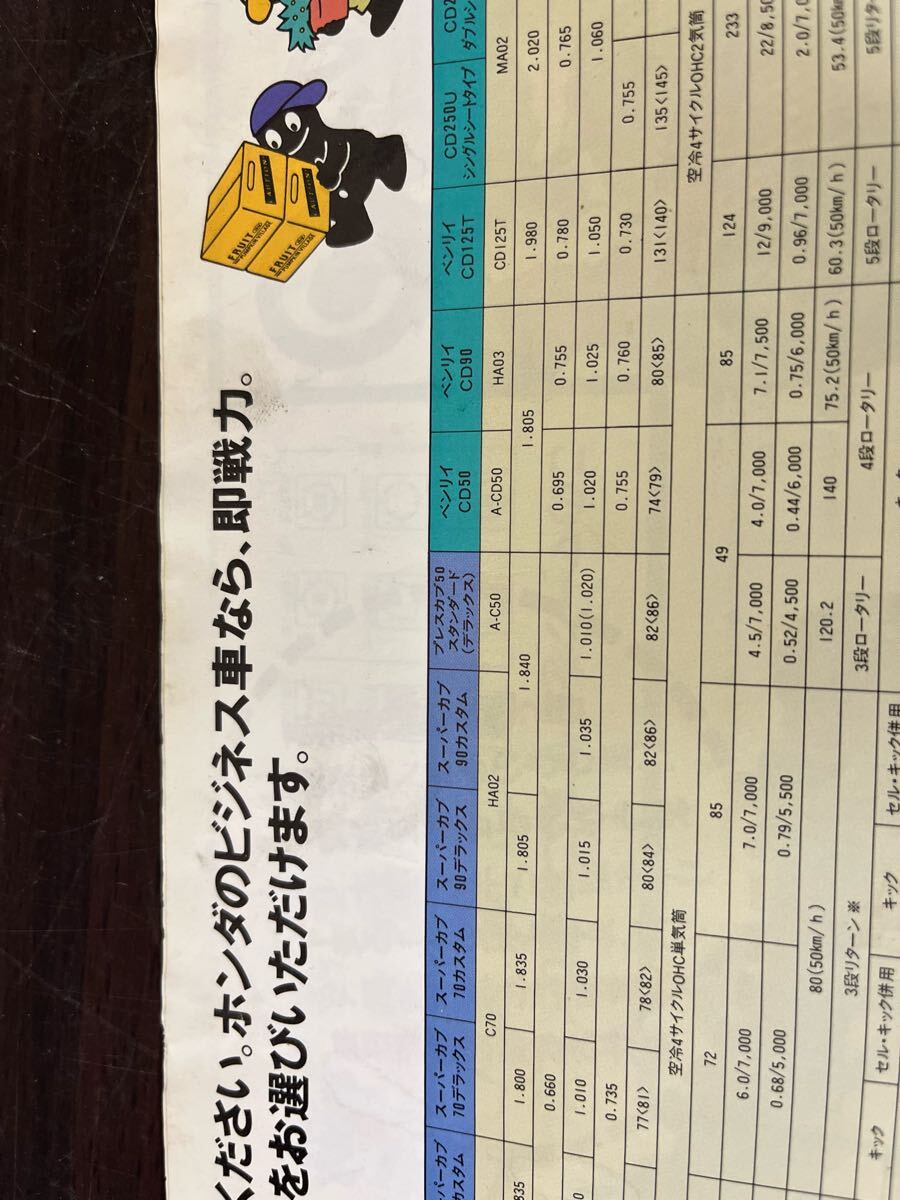 ください。ホンダのビジネス車なら、即戦力。
をお選びいただけます。
FRUIT
FRUIT
CAUTION
CAUTION
カスタム
スーパーカブ
70デラックス
スーパーカブ
70カスタム
スーパーカブ
90デラックス
スーパーカブ
90カスタム
プレスカブ50
スタンダード
(デラックス)
ベンリイ
CD50
ベンリイ
CD90
ベンリイ
CD125T
CD250U
シングルシートタイプ
C70 HA02 A-C50 A-CD50 HA03 CD125T MA02
1.800 1.835 1.805 1.840 1.805 1.980 2.020
0.660 0.695 0.755 0.780 0.765
1.010 1.030 1.015 1.035 1.010(1.020) 1.020 1.025 1.050 1.060
0.735 0.755 0.760 0.730 0.755
77<81> 78<82> 80<84> 82<86> 82<86> 74<79> 80<85> 131<140> 135<145>
空冷4サイクルOHC単気筒 空冷4サイクルOHC2気筒
72 85 49 85 124 233
6.0/7,000 7.0/7,000 4.5/7,000 4.0/7,000 7.1/7,500 12/9,000
0.68/5,000 0.79/5,500 0.52/4,500 0.44/6,000 0.75/6,000 0.96/7,000
80(50km/h) 120.2 140 75.2(50km/h) 60.3(50km/h)
3段リターン※ 3段ロータリー 4段ロータリー 5段ロータリー
キック セル・キック併用 キック セル・キック併用